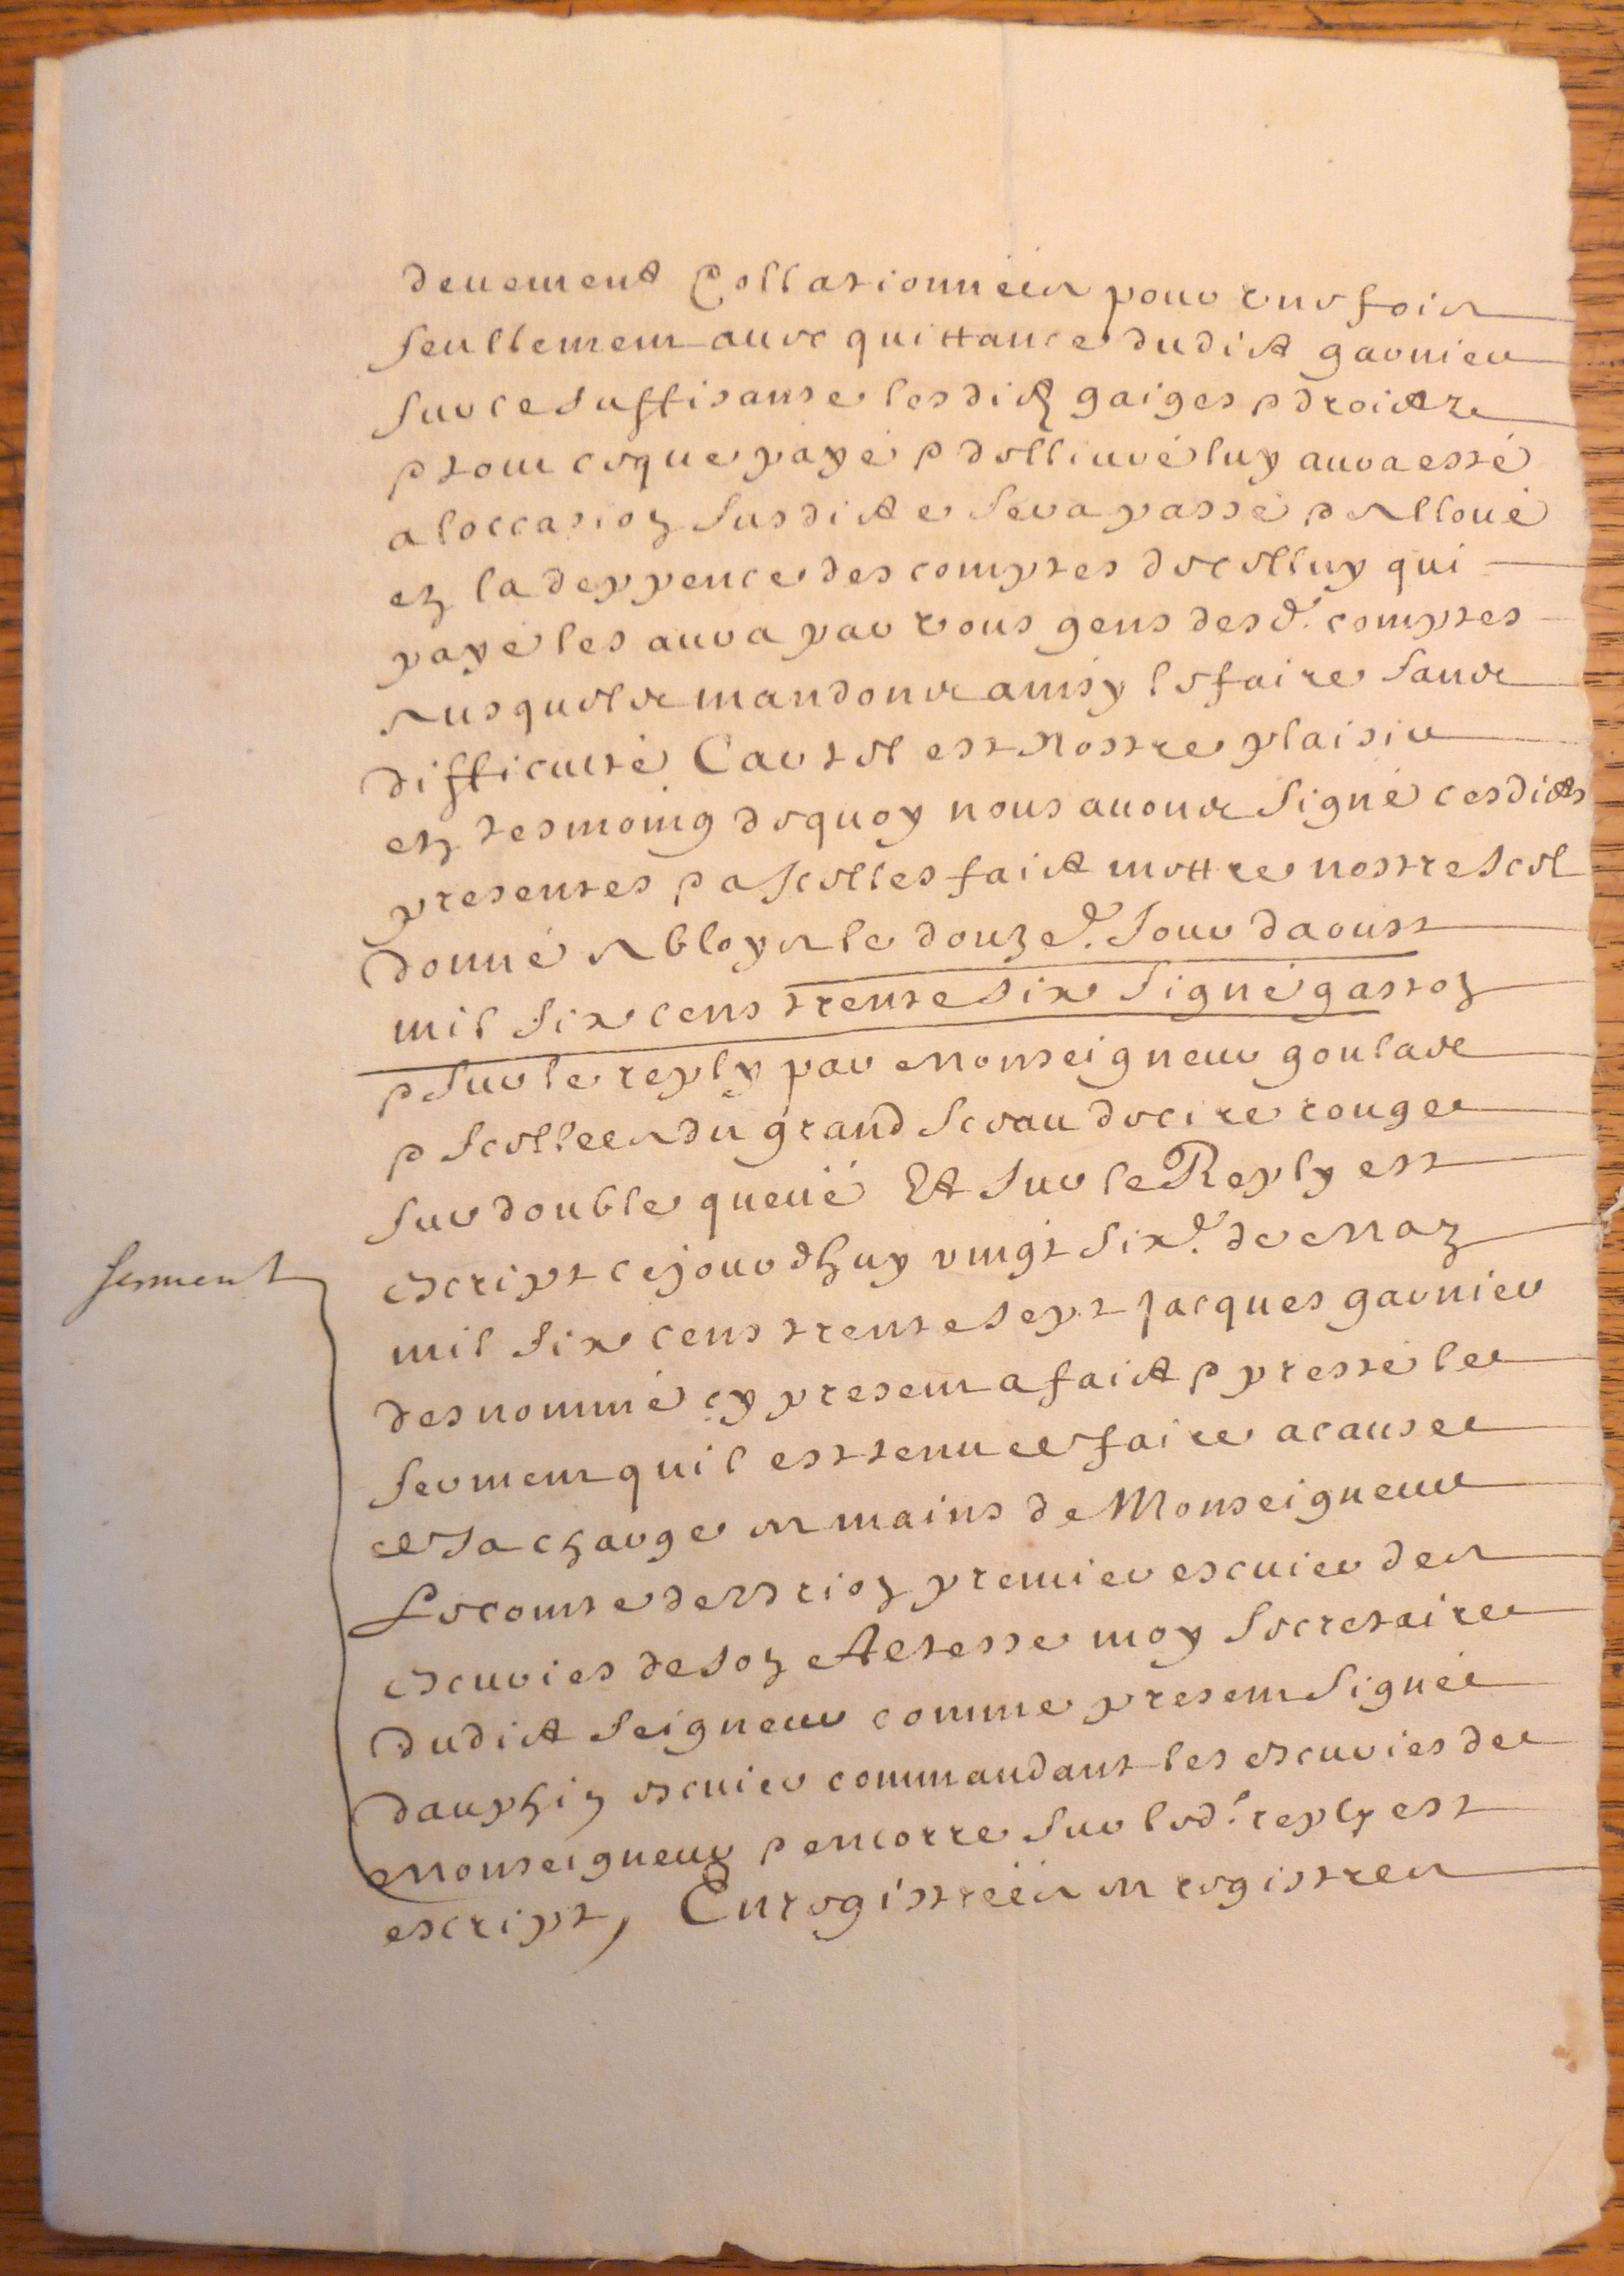 deuement Collationnées pour une fois
seullement auec quittance dudict garnier
sur ce suffisanse lesdictz gaiges & droictz
& tout ce que payé & dellivré luy aura esté
a loccasion susdicte sera passé & alloué
en la deppence des comptes de celluy qui
payé les aura par vous gens desd. comptes
ausquelz mandons ainsy le faire sans
difficulté Car tel est Nostre plaisir
en tesmoing dequoy nous auons signé cesdictes
presentes & a Icelles faict mettre nostre scel
donné a bloys le douze.e Jour daoust
mil six cens trente six signé gaston
& sur le reply par Monseigneur goulas
& scellees du grand sceau de cire rouge
sur double queüe Et sur le Reply est
escript cejourdhuy vingt six.e de May
mil six cens trente sept Jacques garnier
desnommé cy present a faict & presté le
serment quil est tenu de faire a cause
de sa charge es mains de Monseigneur
Le comte de Brion premier escuier des
escuries de son Altesse moy secretaire
dudict seigneur comme present signé
dauphin escuier commandant les escuries de
Monseigneur & encorre sur led. reply est
escript, Enregistrées es registres
serment